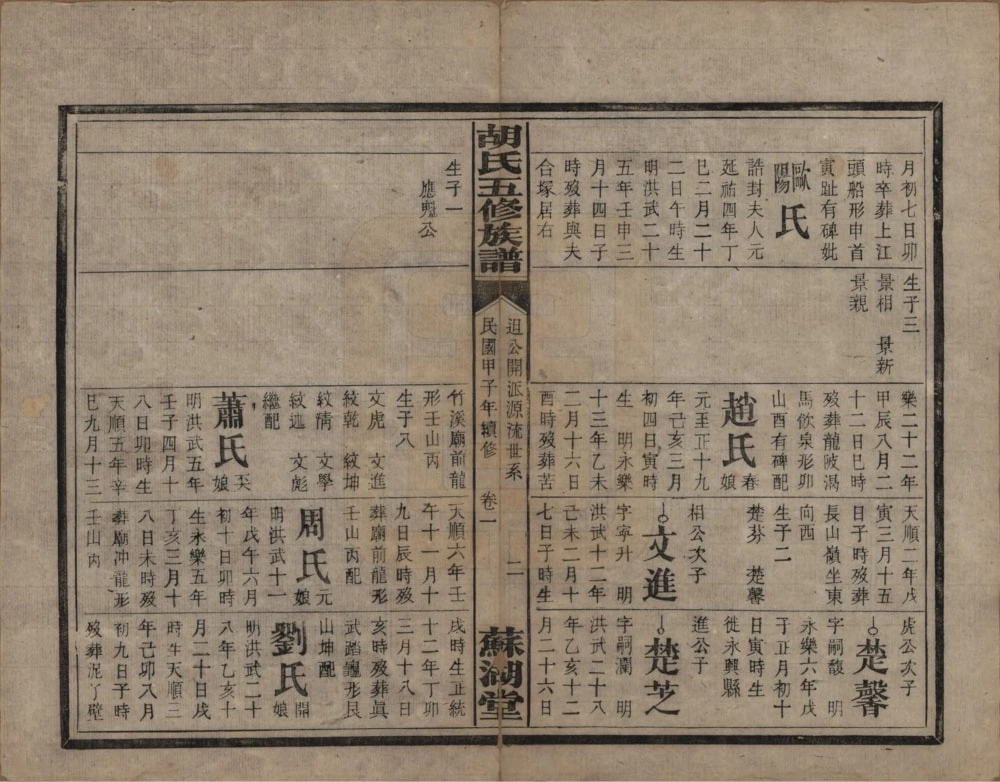 月初七日卯
時卒葬上江
頭船形申首
寅趾有碑妣
歐陽氏
誥封夫人元
延祐四年丁
巳二月二十
二日午時生
明洪武二十
五年壬申三
月十四日子
時歿葬與夫
合塚居右
生子三
景相 景新
景親
樂二十二年
甲辰八月二
十二日巳時
歿葬龍陂濁
馬飲泉形卯
山酉有碑配
趙氏春娘
元至正十九
年己亥三月
初四日寅時
生 明永樂
十三年乙未
二月十六日
酉時歿葬苦
天順二年戊
寅三月十五
日子時歿葬
長山嶺坐東
向西
生子二
楚芬 楚馨
文進
相公次子
字寧升 明
洪武十二年
己未二月十
七日子時生
楚馨
虎公次子
字嗣馥 明
永樂六年戊
子正月初十
日寅時生
徙永興縣
楚芝
進公子
字嗣瀾 明
洪武二十八
年乙亥十二
月二十六日
胡氏五修族譜
迅公開派源流世系 卷一 二
民國甲子年續修
蘇湖堂
生子一
應魁公
竹溪廟前龍
形壬山丙
生子八
文虎 文進
紋乾 紋坤
紋清 文學
紋進 文彪
繼配
蕭氏天娘
明洪武五年
壬子四月十
八日卯時生
天順五年辛
巳九月十三
天順六年壬
午十一月十
九日辰時歿
葬廟前龍形
壬山丙配
周氏元娘
明洪武十一
年戊午六月
初十日卯時
生永樂五年
丁亥三月十
八日未時歿
葬廟沖龍形
壬山丙
戌時生正統
十二年丁卯
三月十八日
亥時歿葬眞
武踏龜形艮
山坤配
劉氏開娘
明洪武二十
八年乙亥十
月二十日戌
時生天順三
年己卯八月
初九日子時
歿葬泥了壁